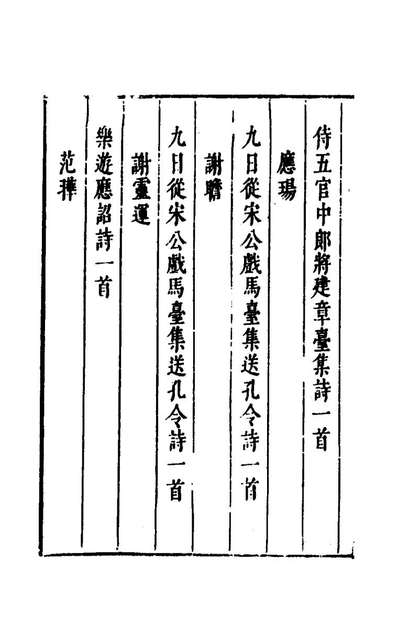 侍五官中郎將建章臺集詩一首
應瑒
九日從宋公戲馬臺集送孔令詩一首
謝瞻
九日從宋公戲馬臺集送孔令詩一首
謝靈運
樂遊應詔詩一首
范曄